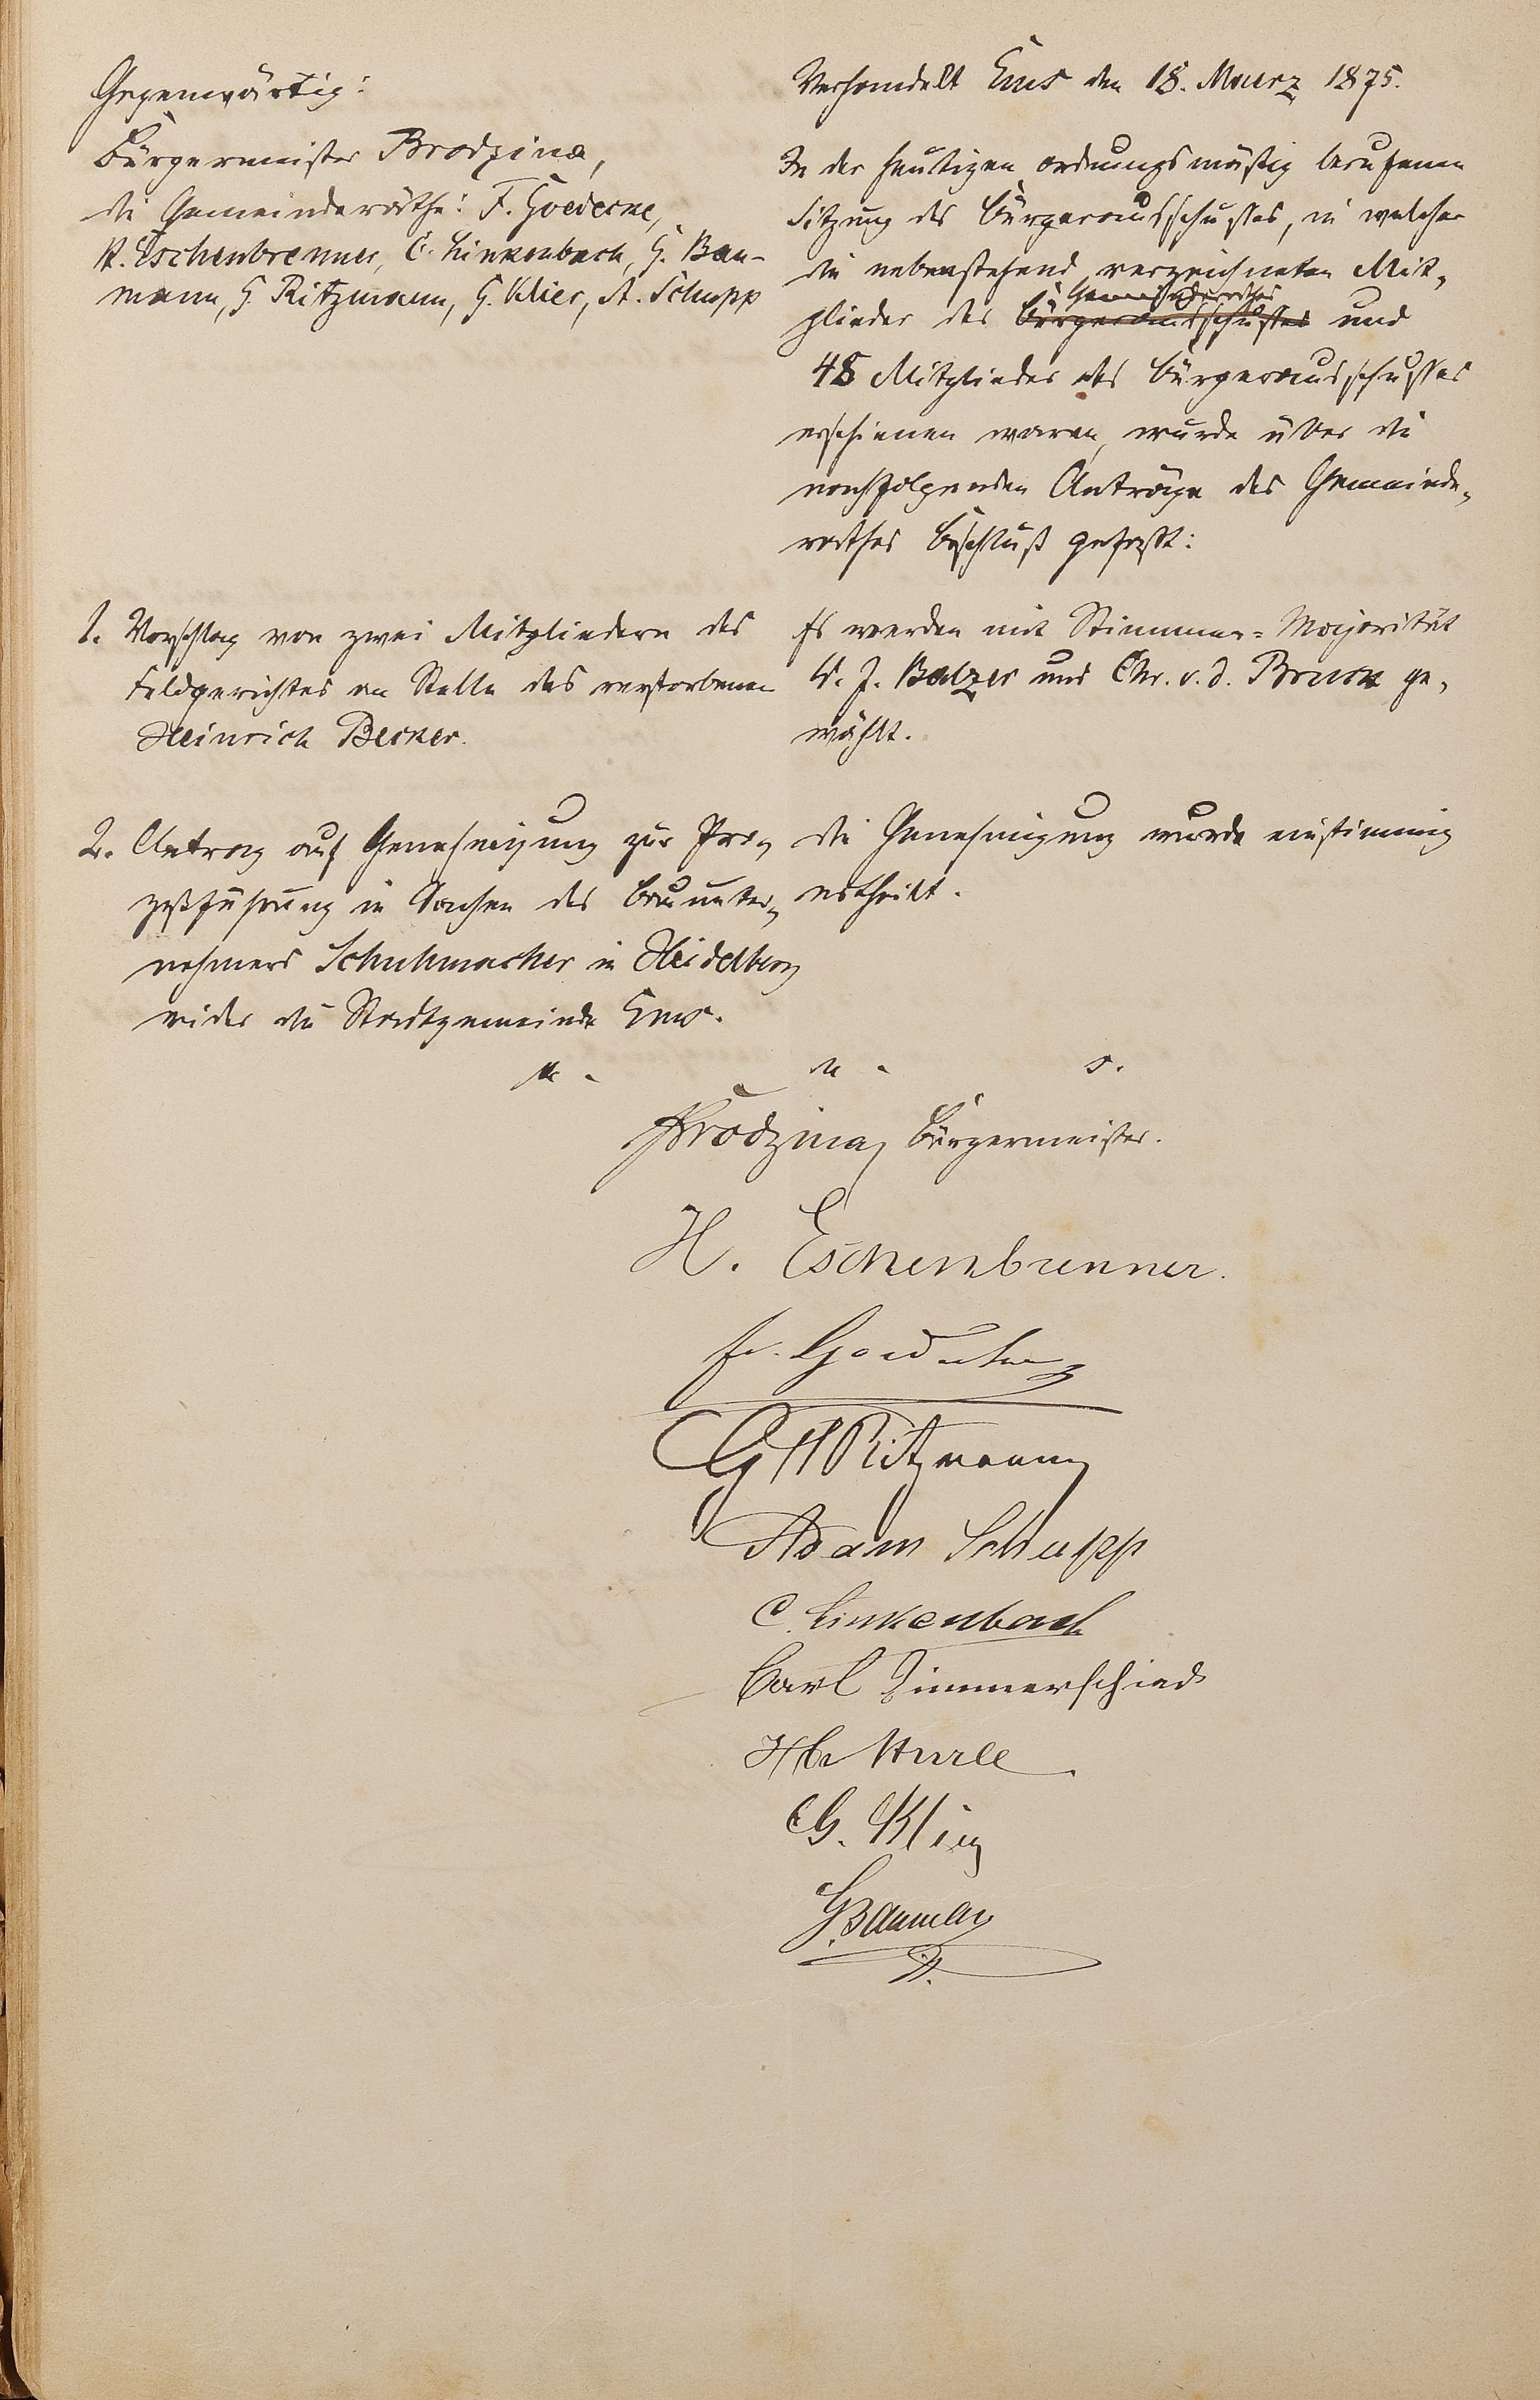 Gegenwärtig:
Bürgermeister Brodzina,
die Gemeinderäthe: F. Goedecke,
H. Eschenbrenner, C. Linkenbach, G. Bau-
mann, G. Ritzmann, G. Klier, A. Schupp
Verhandelt Ems den 18. Maerz 1875.
In der heutigen ordnungsmäßig berufenen
Sitzung des Bürgerausschusses, in welcher
die nebenstehend verzeichneten Mit-
Gemeinderathes
glieder des Bürgerausschusses und
48 Mitglieder des Bürgerausschusses
erschienen waren, wurde über die
nachfolgenden Anträge des Gemeinde-
rathes Beschluß gefaßt:
1. Vorschlag von zwei Mitgliedern des
Feldgerichtes an Stelle des verstorbenen
Heinrich Becker.
Es werden mit Stimmen-Majorität
W. J. Balzer und Chr. v. d. Bruck ge-
wählt.
2. Antrag auf Genehmigung zur Pro-
zeßführung in Sachen des Bauunter-
nehmers Schuhmacher in Heidelberg
wider die Stadtgemeinde Ems.
die Genehmigung wurde einstimmig
ertheilt.
u. s.
Brodzina, Bürgermeister.
H. Eschenbrenner.
Fr. Goedecke
G H Ritzmann
Adam Schupp
C. Linkenbach
Carl Zimmerschied
G. Klier
G. Bauman